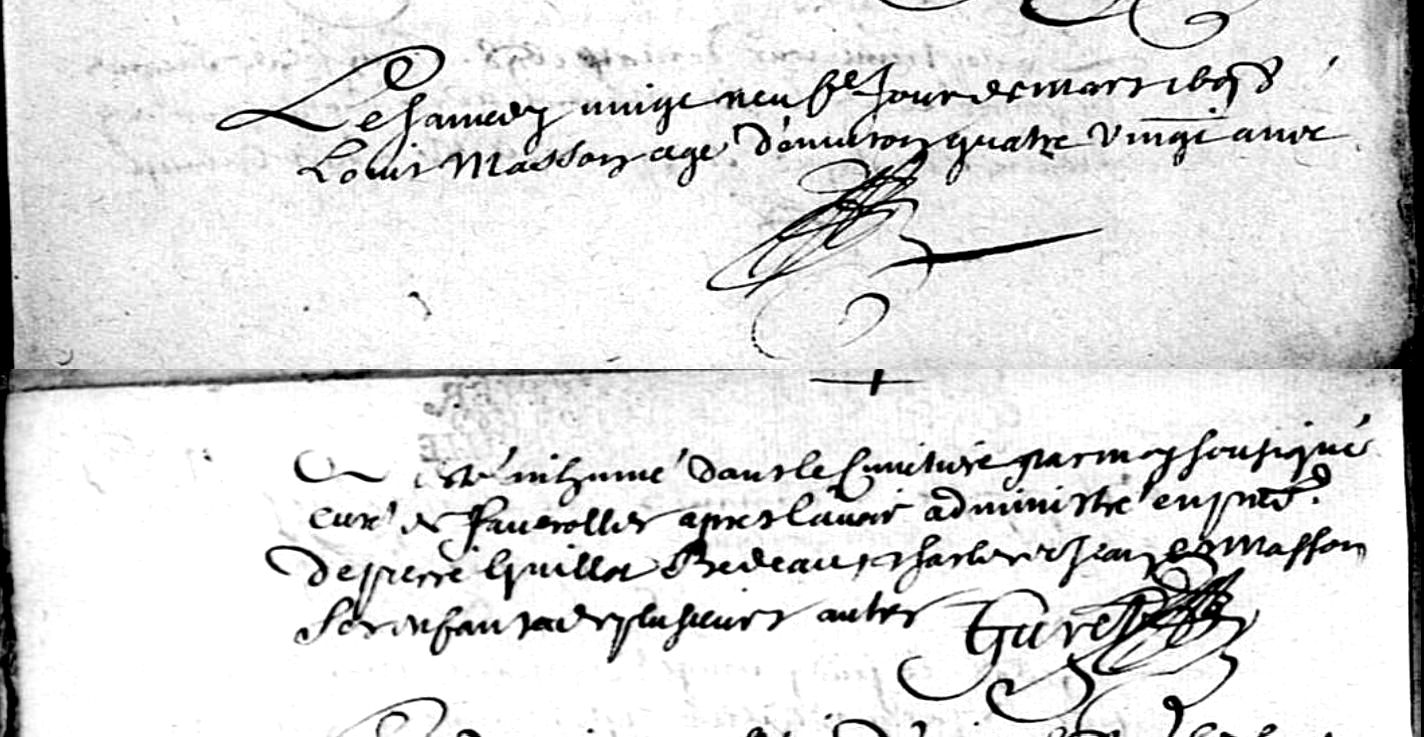 Le samedy vingt neufe Jour de mars 1698
Louis Masson age d'environ quatre vingt ans
a esté inhumé dans le cimetiere par moy sousigné
curé de faverolles apres l'avoir administré en pnce
de pierre Guillot Bedeau, charles et Jean Masson
ses enfans et de plusieurs autres